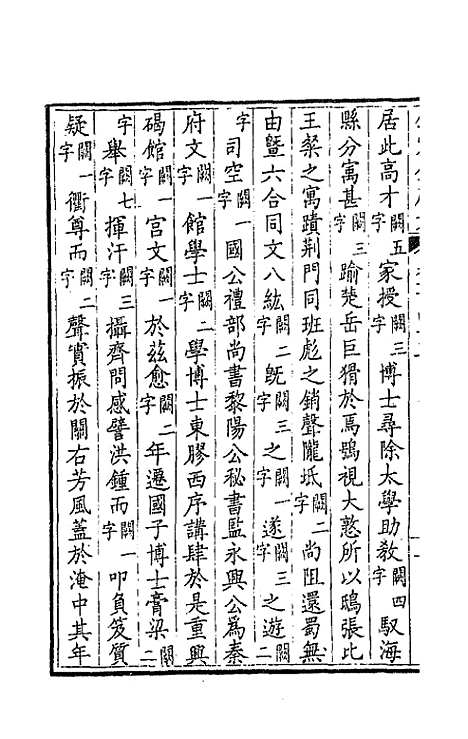 居此高才闕五字家授闕三字博士尋除太學助教闕四字馭海
縣分寓甚闕三字踰楚岳巨猾於焉鴞視大憝所以鴟張比
王粲之寓蹟荆門同班彪之銷聲隴坻闕二字尚阻還蜀無
由曁六合同文八紘闕二字旣闕三字之闕一字遂闕三字之遊闕二
字司空闕一字國公禮部尚書黎陽公秘書監永興公爲秦
府文闕一字館學士闕二字學博士東膠西序講肆於是重興
碣館闕一字宫文闕一字於兹愈闕二字年遷國子博士膏梁闕二
字舉闕七字揮汗闕三字攝齊問感譬洪鍾而闕一字叩負笈質
疑闕一字衢尊而闕二字聲實振於關右芳風蓋於淹中其年